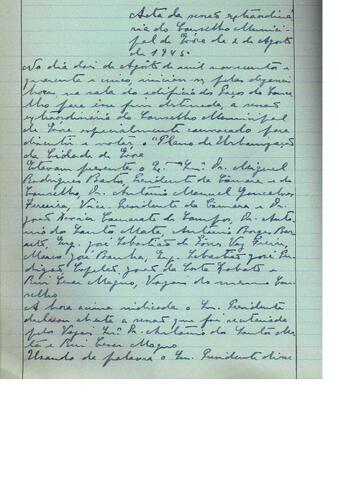 Acta da sessão extraordiná-
ria do Conselho Munici-
pal de Évora de 2 de Agosto
de 1945.
No dia dois de Agosto de mil novecentos e
quarenta e cinco, iniciou-se, pelas dezassis
horas, na sala do edifício dos Paços do Conce-
lho para esse fim destinada, a sessão
extraordinária do Conselho Municipal
de Évora, especialmente convocado para
discutir e votar o "Plano de Urbanização
da Cidade de Évora
Estavam presentes o Ex.mo Sn.r Dr. Miguel
Rodrigues Bastos, Presidente da Câmara e do
Conselho, Dr. António Manuel Gonçalves
Ferreira, Vice-Presidente da Câmara e Dr.
João Camarate de Campos, Dr. Antó-
nio dos Santos Mata, António Borges Bar-
reto, Eng. José Sebastião de Vaz Freire,
José Banha, Eng. Sebastião José Per-
digão, João da Costa e
Rui Cesar Magno, Vogais do mesmo Con-
selho
A hora acima indicada o Sn. Presidente
declarou aberta a sessão que foi secretariada
pelos Vogais Sn.rs Dr. António dos Santos Ma-
ta e Rui Cesar Magno
Usando da palavra o Sn. Presidente disse